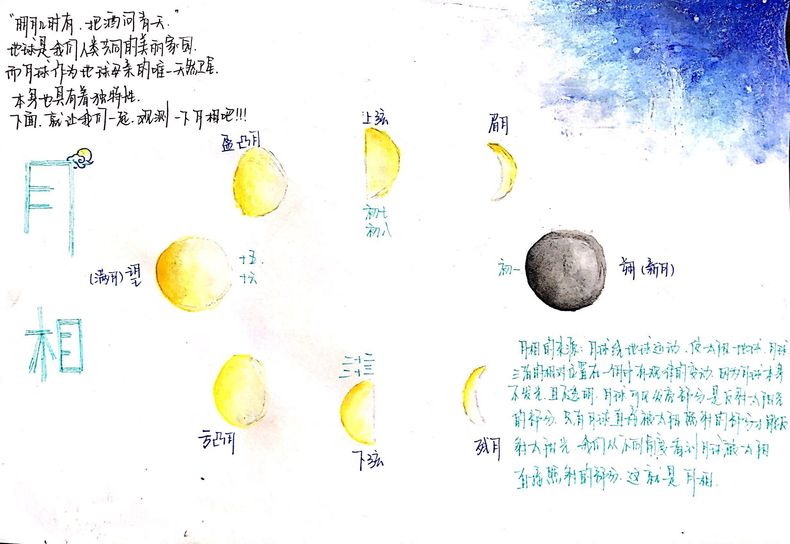 "明月几时有，把酒问青天."
地球是我们人类共同的美丽家园.
而月球作为地球母亲的唯一天然卫星.
本身也具有着独特性.
下面，就让我们一起，观测一下月相吧!!!
月
相
盈凸月
上弦
初七
初八
眉月
(满月)望
十五.
十六
初一
朔(新月)
亏凸月
二十二
二十三
下弦
残月
月相的来源：月球绕地球运动，使太阳、地球、月球
三者的相对位置在一个月中有规律的变动，因为月球本身
不发光，且不透明，月球可见发亮部分是反射太阳光
的部分，只有月球直接被太阳照射的部分才能反
射太阳光，我们从不同角度看到月球被太阳
直接照射的部分，这就是月相.